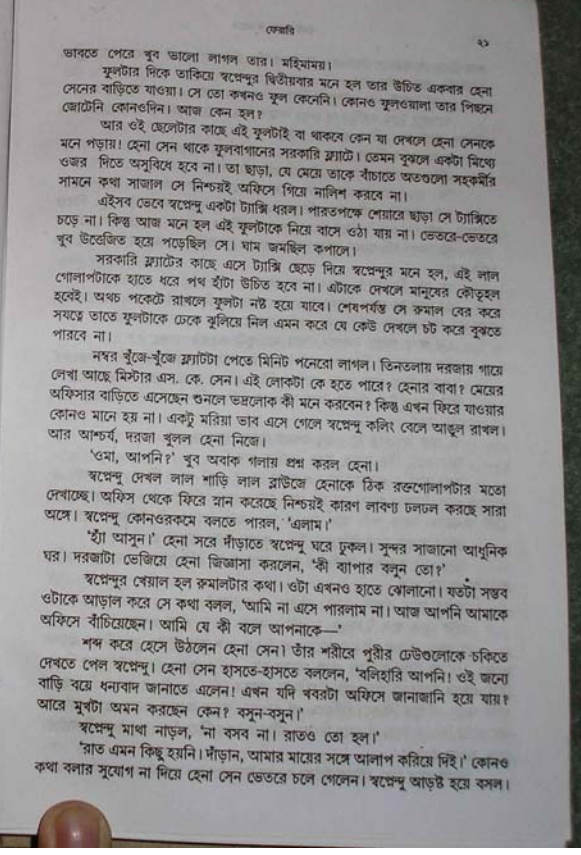 ফেরারি
২১
ভাবতে পেরে খুব ভালো লাগল তার। মহিমাময়।
ফুলটার দিকে তাকিয়ে স্বপ্নেন্দুর দ্বিতীয়বার মনে হল তার উচিত একবার হেনা
সেনের বাড়িতে যাওয়া। সে তো কখনও ফুল কেনেনি। কোনও ফুলওয়ালা তার পিছনে
জোটেনি কোনওদিন। আজ কেন হল?
আর ওই ছেলেটার কাছে এই ফুলটাই বা থাকবে কেন যা দেখলে হেনা সেনকে
মনে পড়ায়! হেনা সেন থাকে ফুলবাগানের সরকারি ফ্ল্যাটে। তেমন বুঝলে একটা মিথ্যে
ওজর দিতে অসুবিধে হবে না। তা ছাড়া, যে মেয়ে তাকে বাঁচাতে অতগুলো সহকর্মীর
সামনে কথা সাজাল সে নিশ্চয়ই অফিসে গিয়ে নালিশ করবে না।
এইসব ভেবে স্বপ্নেন্দু একটা ট্যাক্সি ধরল। পারতপক্ষে শেয়ারে ছাড়া সে ট্যাক্সিতে
চড়ে না। কিন্তু আজ মনে হল এই ফুলটাকে নিয়ে বাসে ওঠা যায় না। ভেতরে-ভেতরে
খুব উত্তেজিত হয়ে পড়েছিল সে। ঘাম জমছিল কপালে।
সরকারি ফ্ল্যাটের কাছে এসে ট্যাক্সি ছেড়ে দিয়ে স্বপ্নেন্দুর মনে হল, এই লাল
গোলাপটাকে হাতে ধরে পথ হাঁটা উচিত হবে না। এটাকে দেখলে মানুষের কৌতূহল
হবেই। অথচ পকেটে রাখলে ফুলটা নষ্ট হয়ে যাবে। শেষপর্যন্ত সে রুমাল বের করে
সযত্নে তাতে ফুলটাকে ঢেকে ঝুলিয়ে নিল এমন করে যে কেউ দেখলে চট করে বুঝতে
পারবে না।
নম্বর খুঁজে-খুঁজে ফ্ল্যাটটা পেতে মিনিট পনেরো লাগল। তিনতলায় দরজায় গায়ে
লেখা আছে মিস্টার এস. কে. সেন। এই লোকটা কে হতে পারে? হেনার বাবা? মেয়ের
অফিসার বাড়িতে এসেছেন শুনলে ভদ্রলোক কী মনে করবেন? কিন্তু এখন ফিরে যাওয়ার
কোনও মানে হয় না। একটু মরিয়া ভাব এসে গেলে স্বপ্নেন্দু কলিং বেলে আঙুল রাখল।
আর আশ্চর্য, দরজা খুলল হেনা নিজে।
‘ওমা, আপনি?’ খুব অবাক গলায় প্রশ্ন করল হেনা।
স্বপ্নেন্দু দেখল লাল শাড়ি লাল ব্লাউজে হেনাকে ঠিক রক্তগোলাপটার মতো
দেখাচ্ছে। অফিস থেকে ফিরে স্নান করেছে নিশ্চয়ই কারণ লাবণ্য ঢলঢল করছে সারা
অঙ্গে। স্বপ্নেন্দু কোনওরকমে বলতে পারল, ‘এলাম।’
‘হ্যাঁ আসুন।’ হেনা সরে দাঁড়াতে স্বপ্নেন্দু ঘরে ঢুকল। সুন্দর সাজানো আধুনিক
ঘর। দরজাটা ভেজিয়ে হেনা জিজ্ঞাসা করলেন, ‘কী ব্যাপার বলুন তো?’
স্বপ্নেন্দুর খেয়াল হল রুমালটার কথা। ওটা এখনও হাতে ঝোলানো। যতটা সম্ভব
ওটাকে আড়াল করে সে কথা বলল, ‘আমি না এসে পারলাম না। আজ আপনি আমাকে
অফিসে বাঁচিয়েছেন। আমি যে কী বলে আপনাকে—’
শব্দ করে হেসে উঠলেন হেনা সেন। তাঁর শরীরে পুরীর ঢেউগুলোকে চকিতে
দেখতে পেল স্বপ্নেন্দু। হেনা সেন হাসতে-হাসতে বললেন, ‘বলিহারি আপনি! ওই জন্যে
বাড়ি বয়ে ধন্যবাদ জানাতে এলেন! এখন যদি খবরটা অফিসে জানাজানি হয়ে যায়?
আরে মুখটা অমন করছেন কেন? বসুন-বসুন।’
স্বপ্নেন্দু মাথা নাড়ল, ‘না বসব না। রাতও তো হল।’
‘রাত এমন কিছু হয়নি। দাঁড়ান, আমার মায়ের সঙ্গে আলাপ করিয়ে দিই।’ কোনও
কথা বলার সুযোগ না দিয়ে হেনা সেন ভেতরে চলে গেলেন। স্বপ্নেন্দু আড়ষ্ট হয়ে বসল।